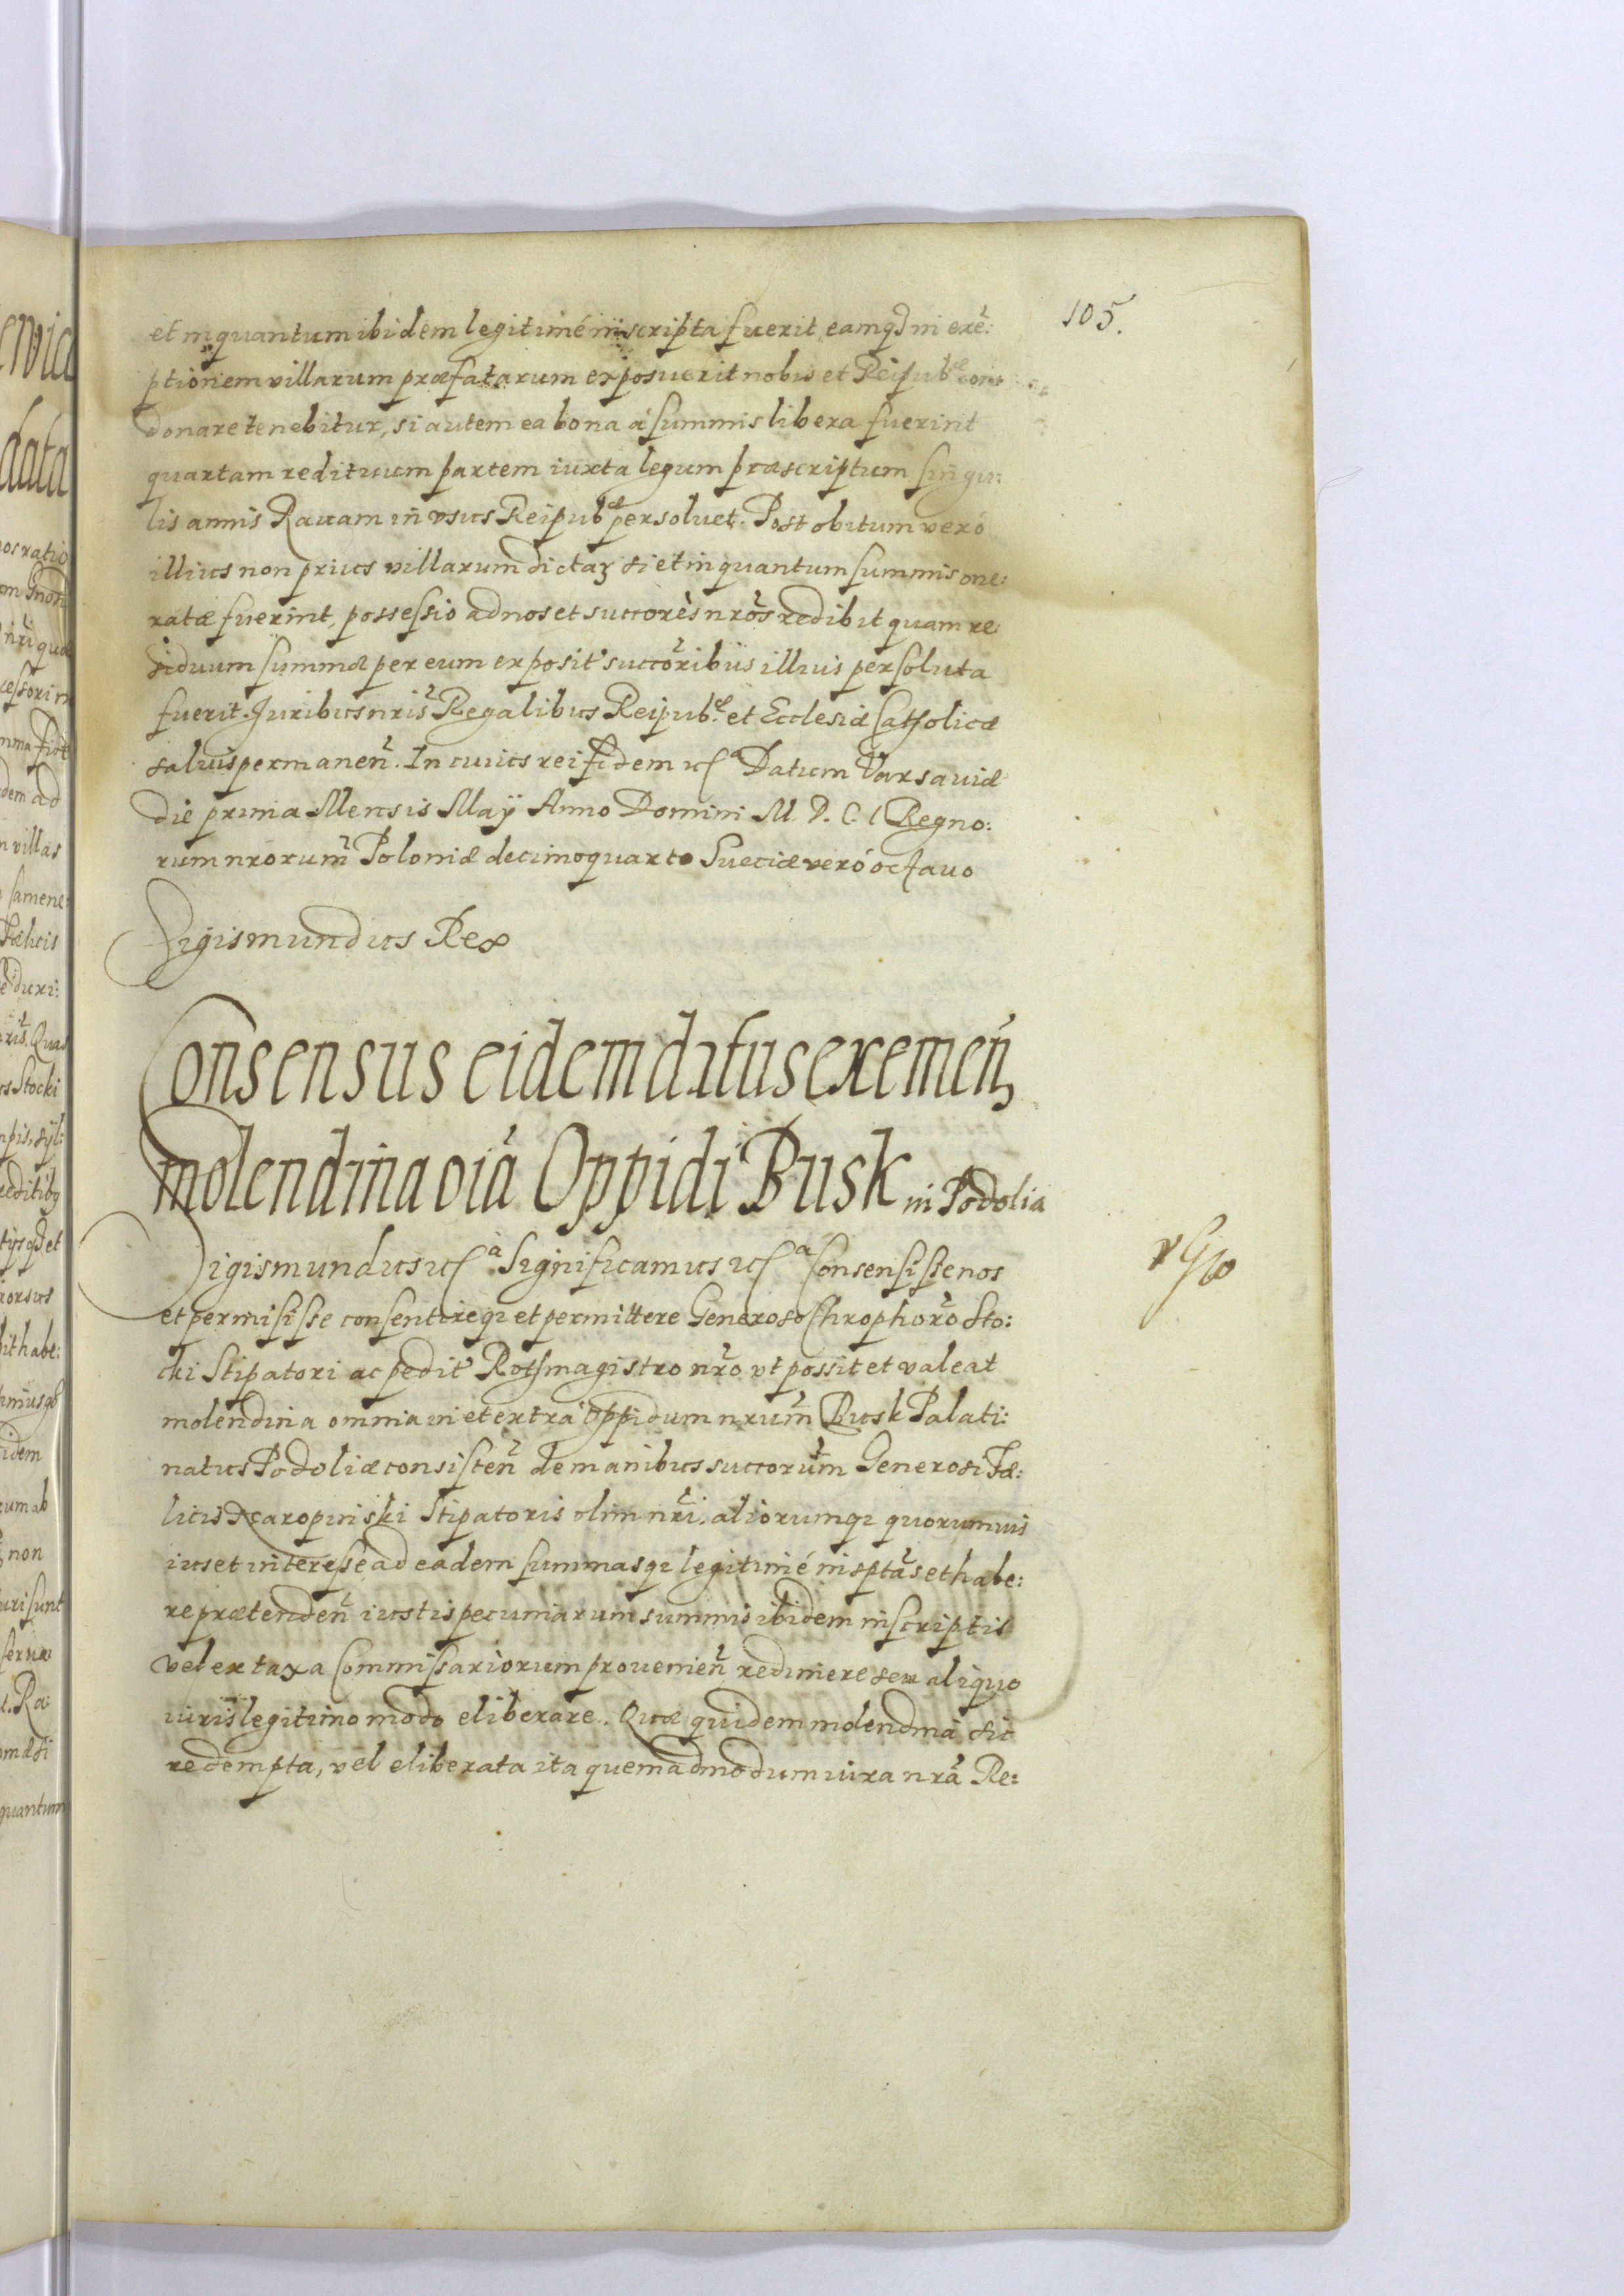 105.
et inquantum ibidem legitimé inscripta fuerit, eamqȝ in exē:
ptionem villarum præfatarum exposuerit nobis et Reipub:
donare tenebitur, si autem ea bona á summis libera fuerint
quartam redituum partem iuxta legum præscriptum singu:
lis annis Rauam in vsus Reipubᶜᵃᵉ persoluet. Post obitum veró
illius non prius villarum dictaȝ si et inquantum summis one:
ratæ fuerint, possessio ad nos et succorēs nr̄os redibit quam re:
siduum summæ per eum exposit' succoribus illius persoluta
fuerit. Juribus nris Regalibus Reipubᶜᵃᵉ et Ecclesiæ Catholicæ
saluis permanen̄. In cuius rei fidem ⁊cᵃ Datum Varsauiæ
die prima Mensis Maÿ Anno Domini M. D. C I Regno:
rum nrorum Poloniæ decimoquarto Sueciæ veró octauo
Sigismundus Rex
Consensus eidem datus exemen̄
molendina oīa Oppidi Busk in Podolia
Sigismundus ⁊cᵃ Significamus ⁊cᵃ Consensisse nos
et permisisse consentireqȝ et permittere Generoso Chrophoro Sto:
cki Stipatori ac pedit' Rothmagistro nr̄o vt possit et valeat
molendina omnia in et extra Oppidum nrum Busk Palati:
natus Podoliæ consisten̄ de manibus succorum Generosi Fæ:
licis Skaropinski Stipatoris olim nr̄i, aliorumqȝ quorumuis
ius et interesse ad eadem summasqȝ legitimé insptas et habe:
re prætenden̄ iustis pecuniarum summis ibidem inscriptis
vel ex taxa Commissariorum prouenien̄ redimere seu aliquo
iuris legitimo modo eliberare. Quæ quidem molendina sic
redempta, vel eliberata ita quemadmodum iura nr̄a Re: